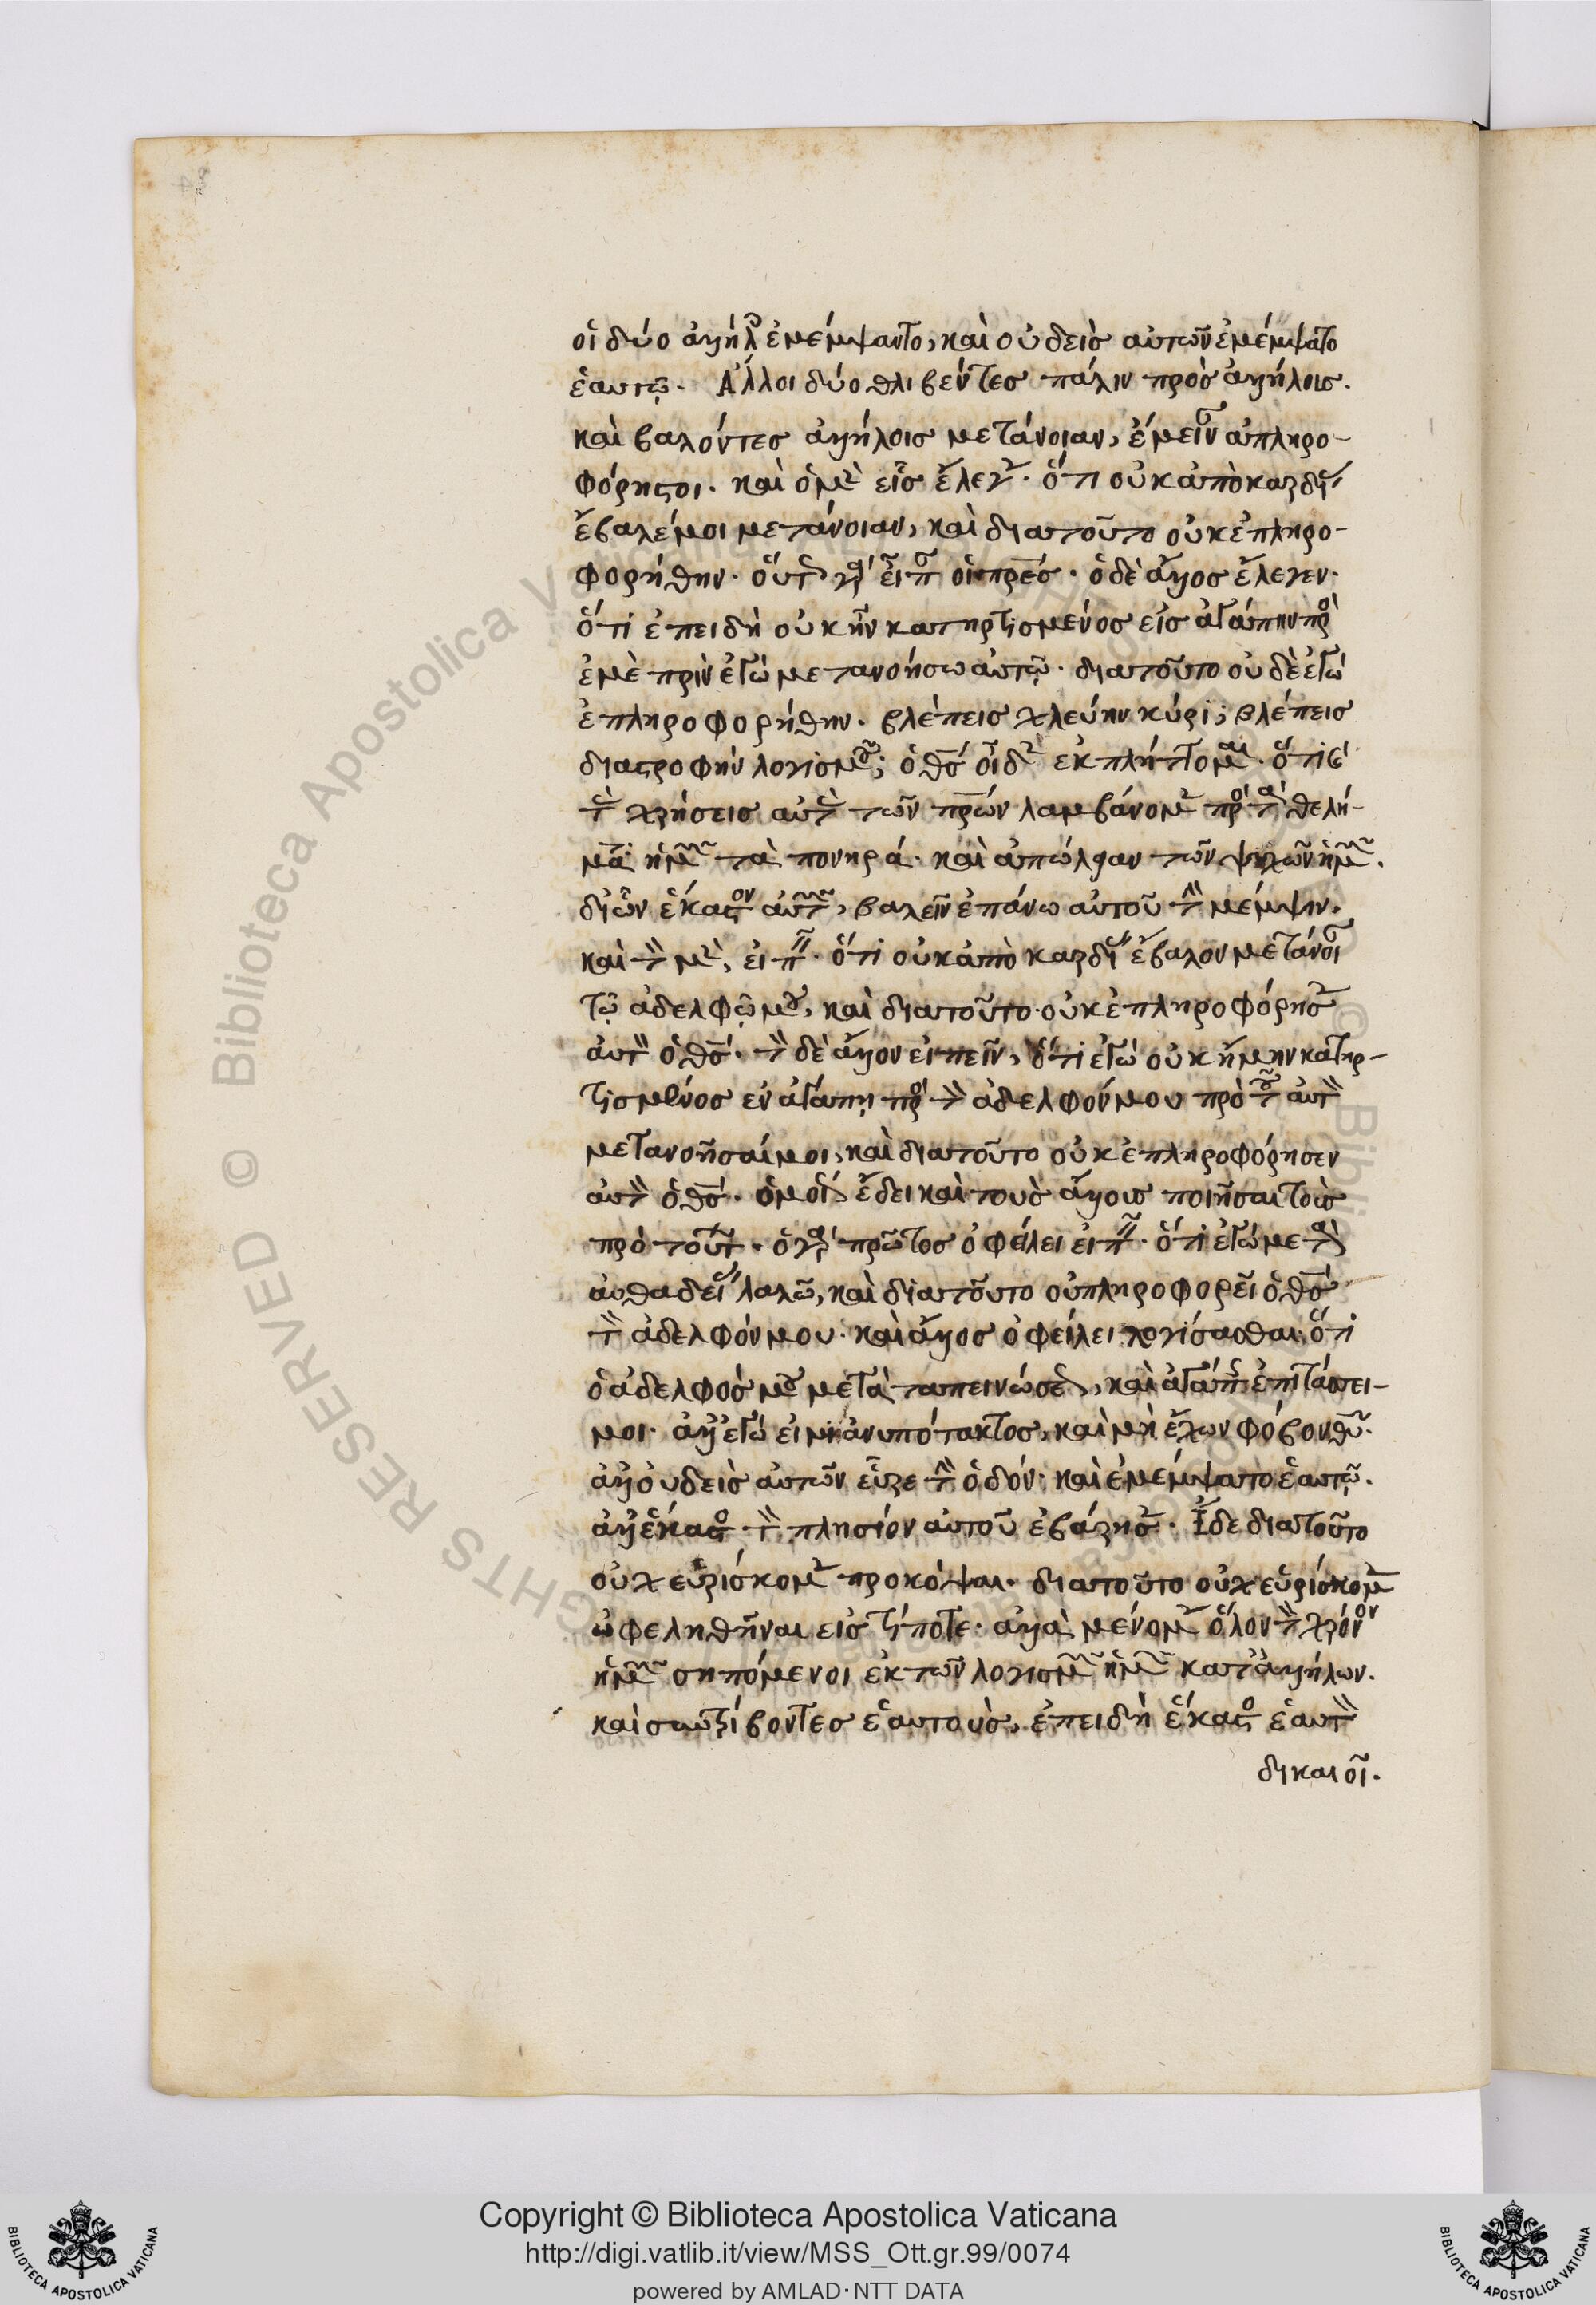 οἱ δύο ἀλλήλους ἐμέμψαντο, καὶ οὐδεὶς αὐτῶν ἐμέμψατο
ἑαυτῷ. Ἄλλοι δύο θλιβέντες πάλιν πρὸς ἀλλήλους.
καὶ βαλόντες ἀλλήλοις μετάνοιαν, ἔμειναν ἀπληρο-
φόρητοι. καὶ ὁ μὲν εἷς ἔλεγεν. ὅτι οὐκ ἀπὸ καρδίας
ἔβαλέ μοι μετάνοιαν, καὶ διατοῦτο οὐκ ἐπληρο-
φορήθην. οὕτως γὰρ εἶπον οἱ πρες. ὁ δὲ ἄλλος ἔλεγεν.
ὅτι ἐπειδὴ οὐκ ἦν κατηρτισμένος εἰς ἀγάπην πρὸς
ἐμὲ πρὶν ἐγὼ μετανοήσω αὐτῷ. διατοῦτο οὐδὲ ἐγὼ
ἐπληροφορήθην. βλέπεις χλεύην κύρι; βλέπεις
διαστροφὴν λογισμοῦ; ὁ θς οἶδεν ἐκπλήττομαι. ὅτι καὶ
τὰς χρήσεις αὐτὰς τῶν πρων λαμβάνομεν πρὸς τὰ θελή-
ματα ἡμῶν τὰ πονηρά. καὶ ἀπώλειαν τῶν ψυχῶν ἡμῶν.
δι ὧν ἕκαστον αὐτῶν, βαλεῖν ἐπάνω αὐτοῦ τὴν μέμψιν.
καὶ τὸν μὲν, εἰπεῖν. ὅτι οὐκ ἀπὸ καρδίας ἔβαλον μετάνοιαν
τῷ ἀδελφῷ μου, καὶ διατοῦτο οὐκ ἐπληροφόρησεν
αὐτὸν ὁ θς. τὸν δὲ ἄλλον εἰπεῖν, ὅτι ἐγὼ οὐκ ἤμην κατηρ-
τισμένος ἐν ἀγάπῃ πρὸς τὸν ἀδελφόν μου πρὸ τοῦ αὐτὸν
μετανοῆσαί μοι, καὶ διατοῦτο οὐκ ἐπληροφόρησεν
αὐτὸν ὁ θς. ὁμοίως ἔδει καὶ τοὺς ἄλλους ποιῆσαι τοὺς
πρὸ τούτων. ὁ γὰρ πρῶτος ὀφείλει εἰπεῖν. ὅτι ἐγὼ μετὰ
αὐθαδείας λαλῶ, καὶ διατοῦτο οὐ πληροφορεῖ ὁ θς
τὸν ἀδελφόν μου. καὶ ἄλλος ὀφείλει λογίσασθαι. ὅτι
ὁ ἀδελφός μου μετὰ ταπεινώσεως, καὶ ἀγάπης ἐπιτάσσει-
μοι. ἀλλ ἐγώ εἰμι ἀνυπότακτος, καὶ μὴ ἔχων φόβον θυ.
ἀλλ οὐδεὶς αὐτῶν εὗρε τὴν ὁδόν. καὶ ἐμέμψατο ἑαυτῷ.
ἀλλ ἕκαστος τὸν πλησίον αὐτοῦ ἐβάρησεν. Ἴδε διατοῦτο
οὐχ εὑρίσκομεν προκόψαι. διατοῦτο οὐχ εὑρίσκομεν
ὠφεληθῆναι εἰς τίποτε. ἀλλὰ μένομεν ὅλον τὸν χρόνον
ἡμῶν σηπόμενοι ἐκ τῶν λογισμῶν ἡμῶν κατ ἀλλήλων.
καὶ συντρίβοντες ἑαυτοὺς, ἐπειδὴ ἕκαστος ἑαυτὸν
δικαιοῖ.
Copyright © Biblioteca Apostolica Vaticana
http://digi.vatlib.it/view/MSS_Ott.gr.99/0074
powered by AMLAD·NTT DATA